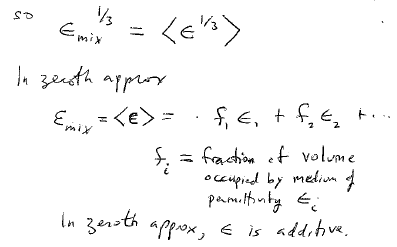 so ϵ_mix^1/3 = ⟨ϵ^1/3⟩
In zeroth approx
ϵ_mix = ⟨ϵ⟩ = f₁ ϵ₁ + f₂ ϵ₂ + ...
f_i = fraction of volume
occupied by medium of
permittivity ϵ_i
In zeroth approx, ϵ is additive.